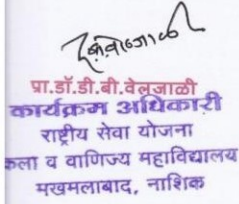 प्रा.डॉ.डी.बी.वेलजाळी
कार्यक्रम अधिकारी
राष्ट्रीय सेवा योजना
कला व वाणिज्य महाविद्यालय
मखमलाबाद, नाशिक